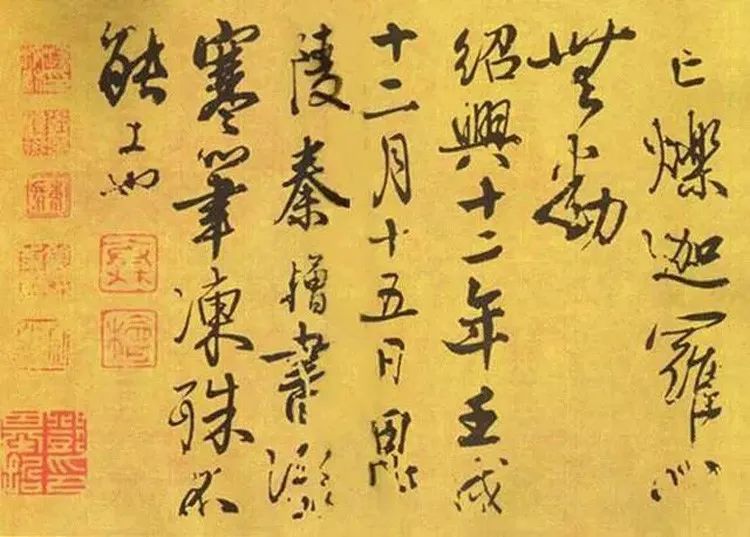 亡爍迦羅心
無動
紹興十二年壬戌
十二月十五日毘
陵秦檜書深
寒筆凍殊不
能工也